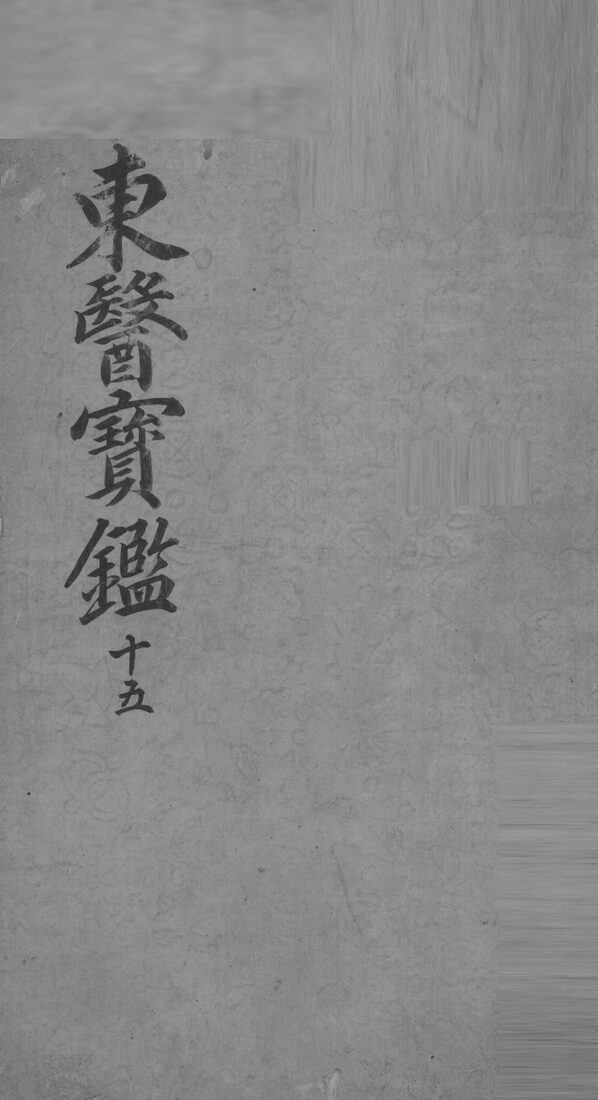 東醫寶鑑 十五